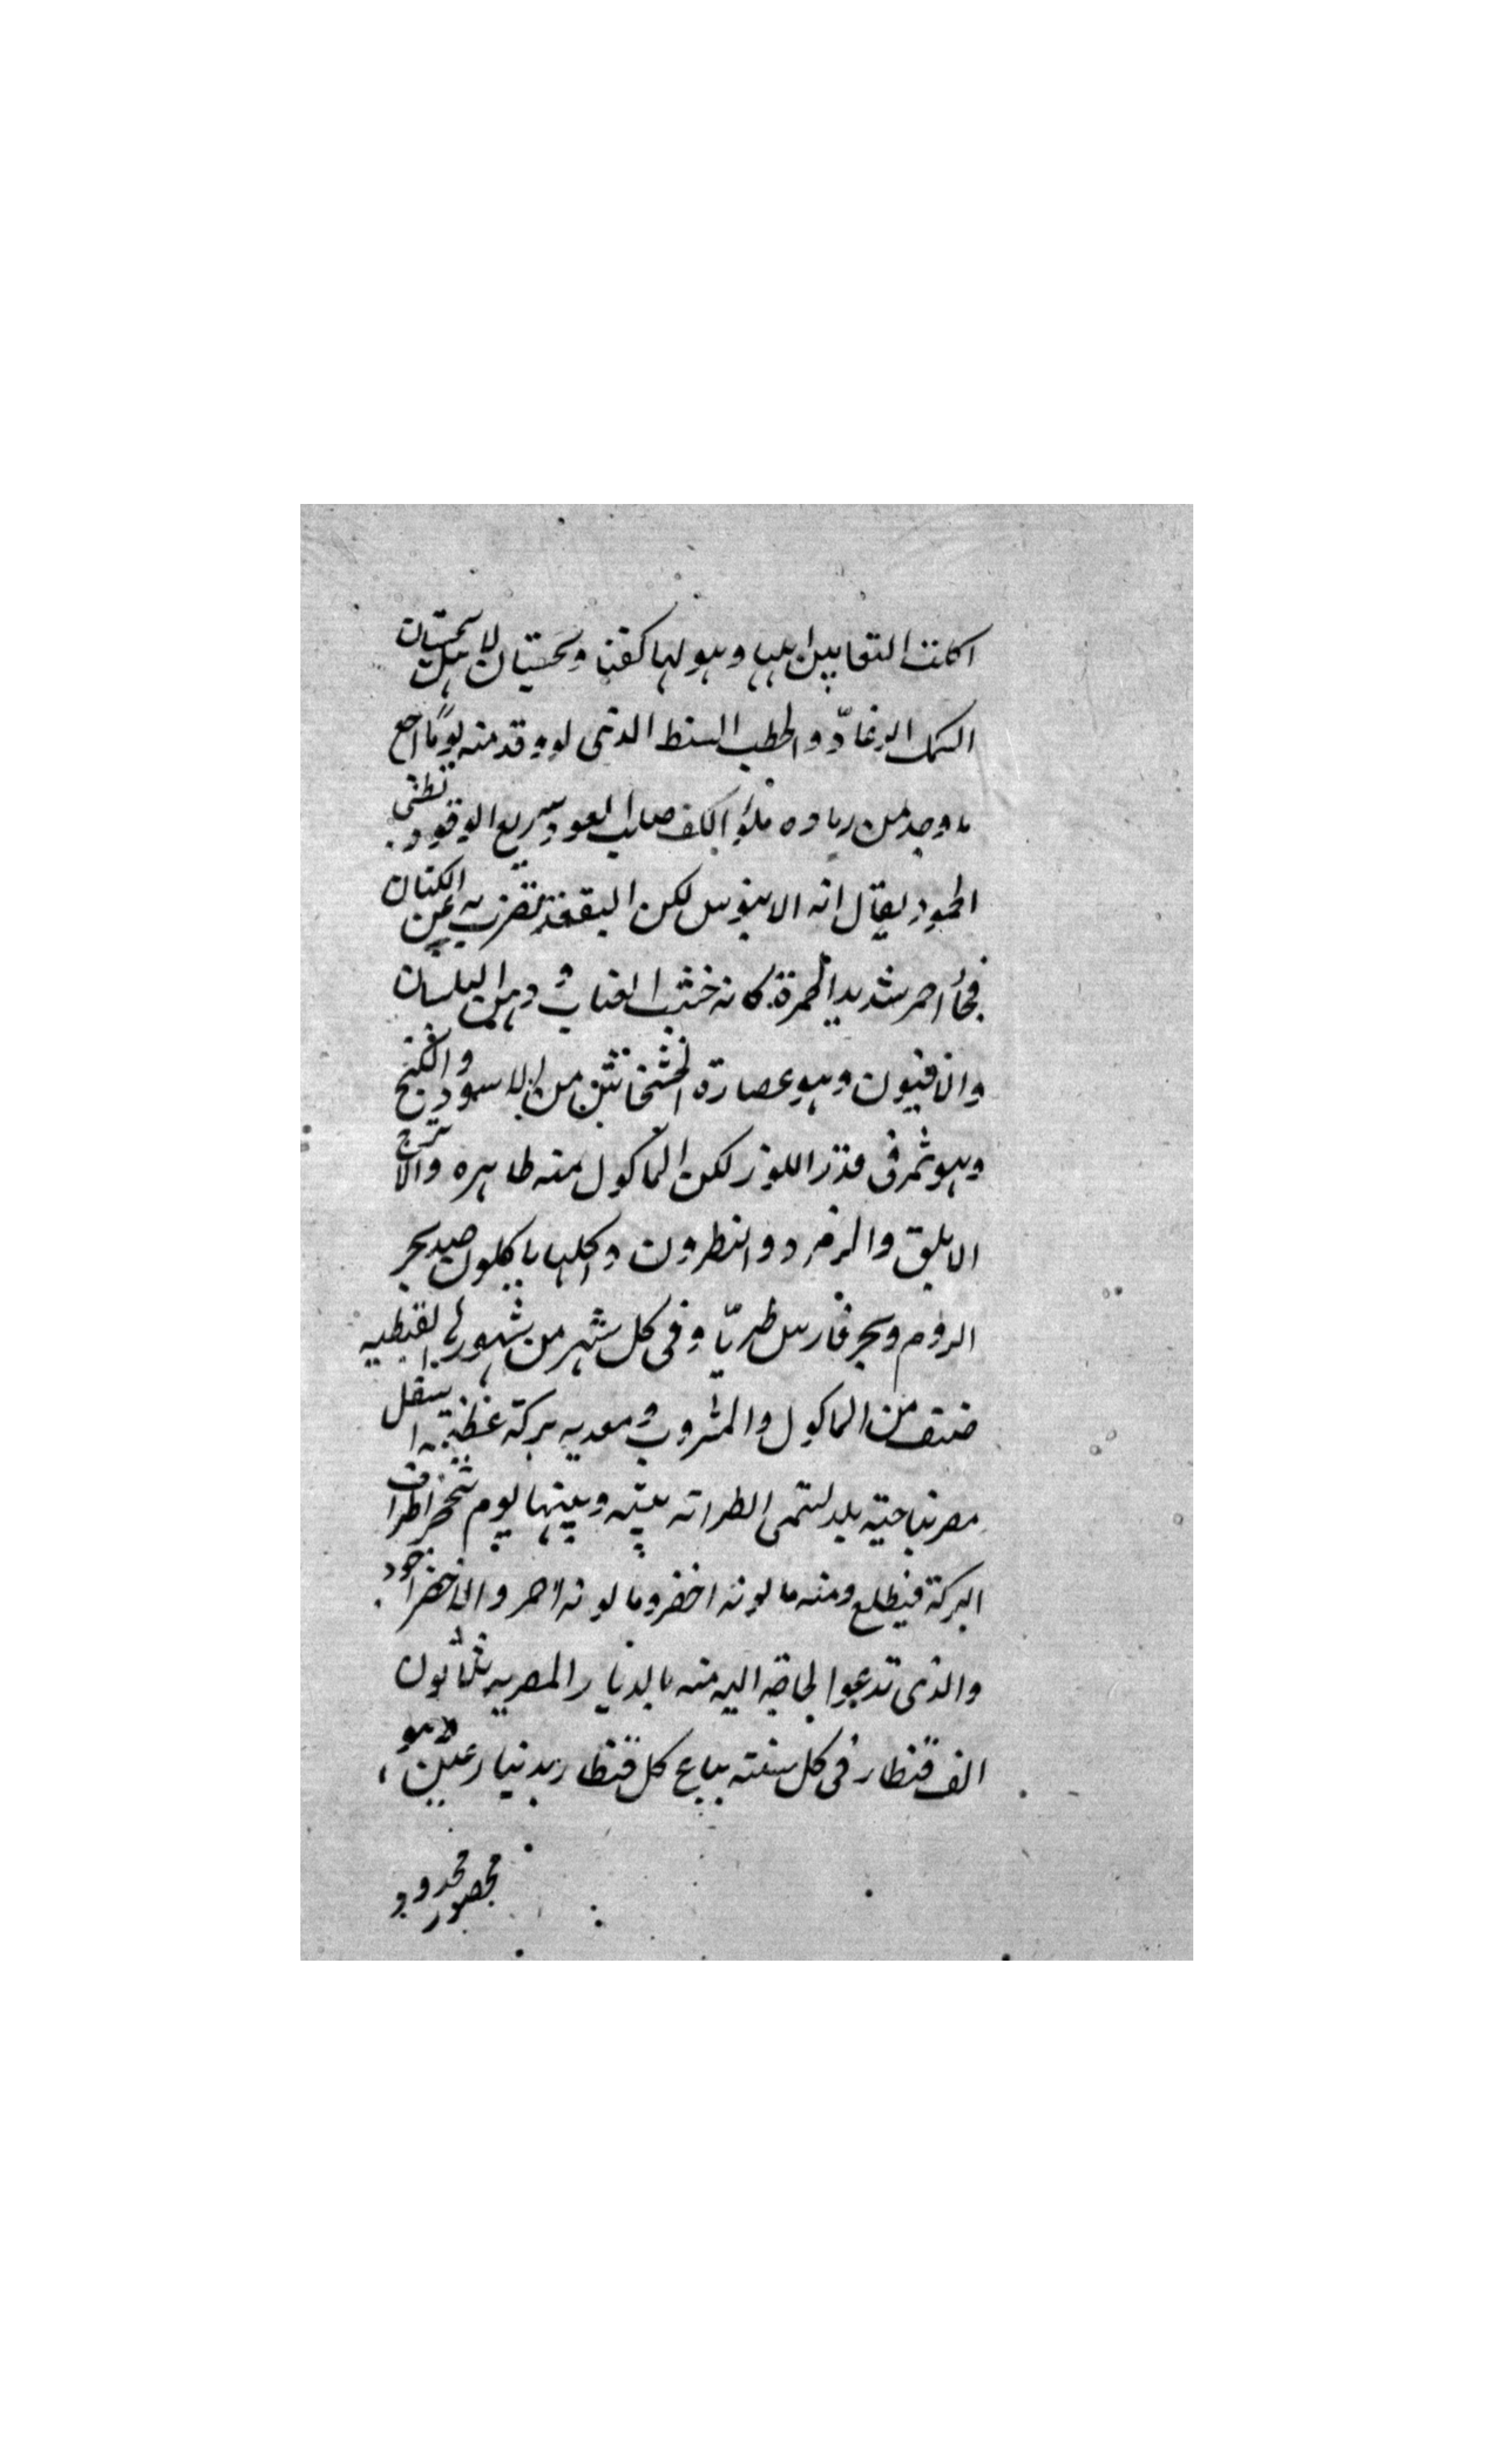 اكلت الثعابين اهلها وهو لها كقنافذ سجستان لاهل سجستان
السمك الرعاد والحطب السنط الذى لو وقد منه يوما اجمع
ما وجد من رماده ملؤ الكف صلب العود سريع الوقود بطئ
الخمود يقال انه الابنوس لكن البقعة تضرب به عن الكتان
فجاء احمر شديد الحمرة كانه خشب العناب ودهن البلسان
والافيون وهو عصارة الخشخاش من الاسود والنج
وهو ثمر فى قدر اللوز لكن الماكول منه ظاهره والاترج
الابلق والزمرد والنطرون واهلها ياكلون صيد بحر
الروم وبحر فارس طريا وفى كل شهر من شهورها القبطيه
صنف من الماكول والمشروب ومعديه بركة عظيمة اسفل
مصر بناحية بلد تسمى الطرانه بينه وبينها يوم تحفر اطراف
البركة فيطلع ومنه ما لونه اخضر وما لونه احمر والاخضر اجود
والذى تدعوا لحاجة اليه منه بالديار المصريه ثمانون
الف قنطار فى كل سنة يباع كل قنطار بدينارين وهو
محصور محدود